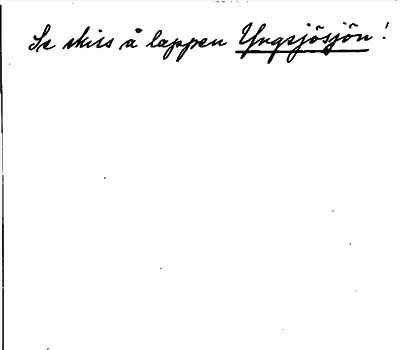 Se skiss å lappen Yngsjösjön!